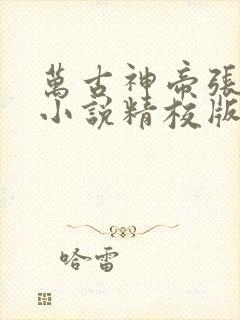 萬古神帝張
小說精校版
哈雷